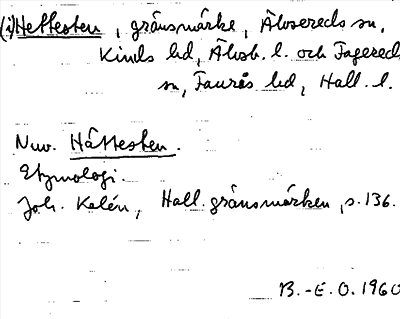 (i) Hettesten, gränsmärke, Älvsereds sn,
Kinds hd, Älvsb. l. och Fagered
sn, Faurås hd, Hall. l.
Nuv. Håttesten.
Etymologi.
Joh. Kalén, Hall. gränsmärken, s. 136.
B.-E. O. 1960